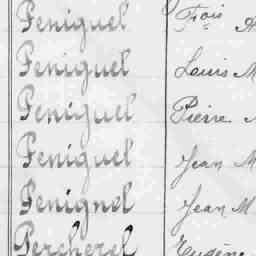 Peniguel Fois A
Peniguel Louis M
Peniguel Pierre
Peniguel Jean M
Penignel Jean M
Percherel Eugène